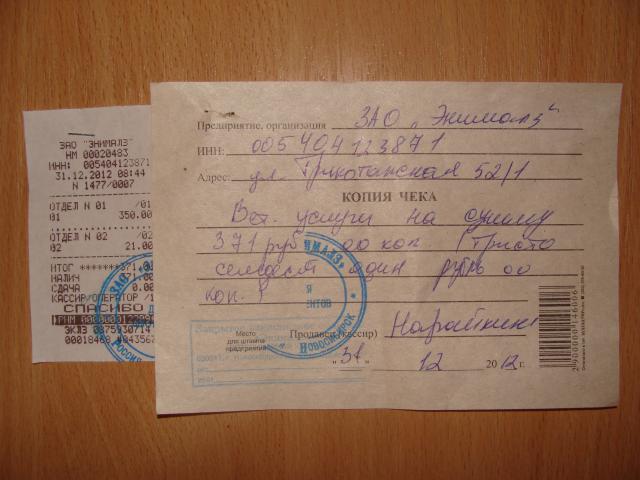 ЗАО "ЭНИМАЛЗ"
НМ 00020483
ИНН: 005404123871
31.12.2012 08:44
N 1477/0007
ОТДЕЛ N 01 /01
01 350.00
ОТДЕЛ N 02 /02
02 21.00
ИТОГ *******371.00
НАЛИЧ
СДАЧА 0.00
КАССИР/ОПЕРАТОР /1
СПАСИБО
ЭКЛЗ 0875930714
00018468
Предприятие, организация ЗАО „Энималз"
ИНН: 005404123871
Адрес: ул. Трикотажная 52/1
КОПИЯ ЧЕКА
Вет. услуги на сумму
371 руб 00 коп (Триста
семьдесят один рубль 00
коп.)
Продавец (кассир)
Место для штампа предприятия
"31" 12 2012г.
НОВОСИБИРСК
2900000146006